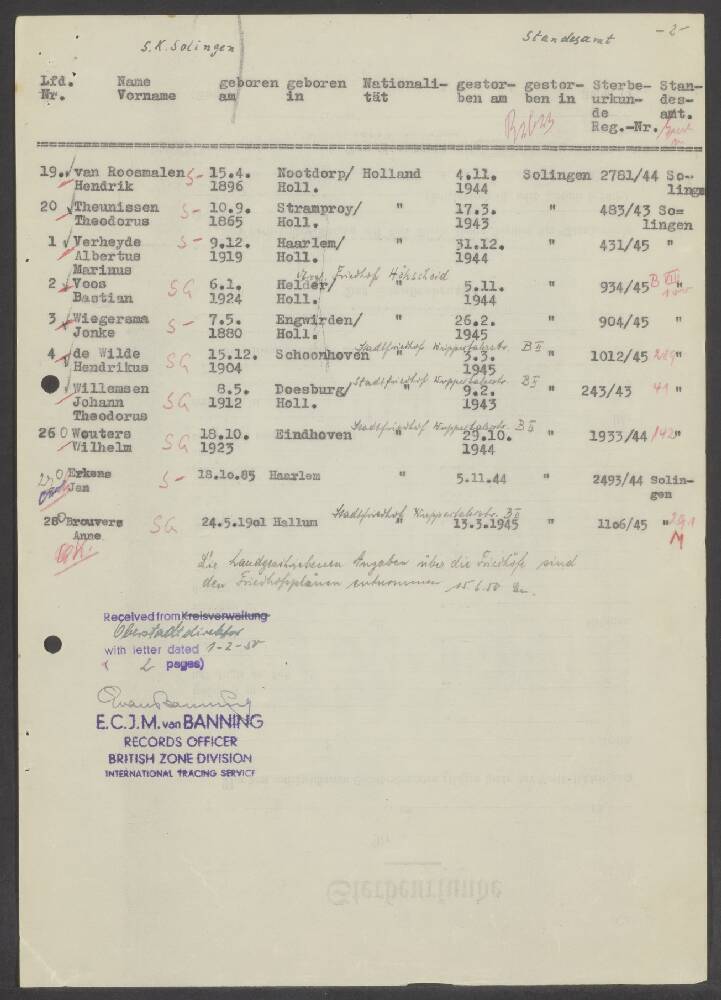 - 2 -
S.K. Solingen
Standesamt
Lfd. Name geboren geboren Nationali- gestor- gestor- Sterbe- Stan-
Nr. Vorname am in tät ben am ben in urkun- des-
de amt.
Reg.-Nr.
19. van Roosmalen S- 15.4. Nootdorp/ Holland 4.11. Solingen 2781/44 So-
Hendrik 1896 Holl. 1944 lingen
20 Theunissen S- 10.9. Stramproy/ " 17.3. " 483/43 So=
Theodorus 1865 Holl. 1943 lingen
1 Verheyde S- 9.12. Haarlem/ " 31.12. " 431/45 "
Albertus 1919 Holl. 1944
Marinus
Friedhof Höhscheid
2 Voos SG 6.1. Helder/ " 5.11. " 934/45 B VIII "
Bastian 1924 Holl. 1944
3 Wiegersma S- 7.5. Engwirden/ " 26.2. " 904/45 "
Jonke 1880 Holl. 1945
Stadtfriedhof Wuppertalerstr. B II
4 de Wilde SG 15.12. Schoonhoven " 3.3. " 1012/45 "
Hendrikus 1904 1945
Stadtfriedhof Wuppertalerstr. B II
Willemsen SG 8.5. Doesburg/ " 9.2. " 243/43 41 "
Johann 1912 Holl. 1943
Theodorus
Stadtfriedhof Wuppertalerstr. B II
26 Wouters SG 18.10. Eindhoven " 29.10. " 1933/44 142 "
Wilhelm 1923 1944
Erkens S- 18.10.85 Haarlem " 5.11.44 " 2493/44 Solin-
Jan gen
Stadtfriedhof Wuppertalerstr. B II
28 Brouvers SG 24.5.1901 Hallum " 13.3.1945 " 1106/45 " 291
Anne M
Die handgeschriebenen Angaben über die Friedhöfe sind
den Friedhofsplänen entnommen 15.6.50
Received from Kreisverwaltung
Oberstadtdirektor
with letter dated 1-2-50
( 2 pages)
E.C.J.M. van BANNING
RECORDS OFFICER
BRITISH ZONE DIVISION
INTERNATIONAL TRACING SERVICE
Sterbeurkunde